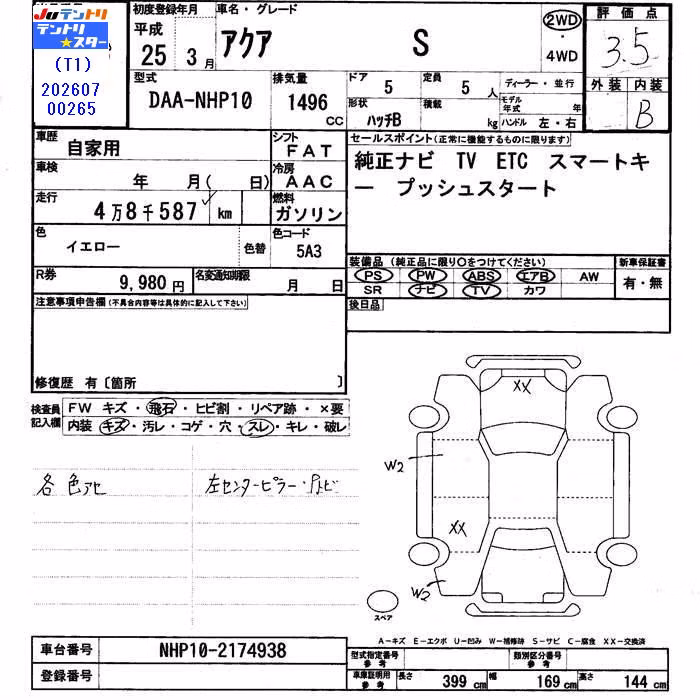 Juテントリ
テントリ
★スター
(T1)
202607
00265
初度登録年月 車名・グレード 評価点
平成
25 3月 アクア S 2WD・4WD 3.5
型式 排気量 ドア 定員 ディーラー・並行 外装 内装
DAA-NHP10 1496 CC 5 5人 モデル年式 年 B
形状 積載 kg ハンドル 左・右
ハッチB
車歴 自家用 シフト FAT
セールスポイント(正常に機能するものに限ります)
純正ナビ TV ETC スマートキ
ー プッシュスタート
車検 年 月( 日) 冷房 AAC
走行 4万8千587 km 燃料 ガソリン
色 イエロー 色替 色コード 5A3
装備品 (純正品に限り○をつけてください) 新車保証書
PS PW ABS エアB AW 有・無
SR ナビ TV カワ
R券 9,980円 名変通知期限 月 日
後日品
注意事項申告欄(不具合内容等は具体的に記入して下さい)
修復歴 有〔箇所 〕
検査員 記入欄
FW キズ・飛石・ヒビ割・リペア跡・×要
内装 キズ・汚レ・コゲ・穴・スレ・キレ・破レ
各色アセ 左センターピラー・
XX
W2
XX
W2
スペア
A-キズ E-エクボ U-凹み W-補修跡 S-サビ C-腐食 XX-交換済
車台番号 NHP10-2174938
型式指定番号 参考 類別区分番号 参考
登録番号
車庫証明用 参考 長さ 399cm 幅 169cm 高さ 144cm